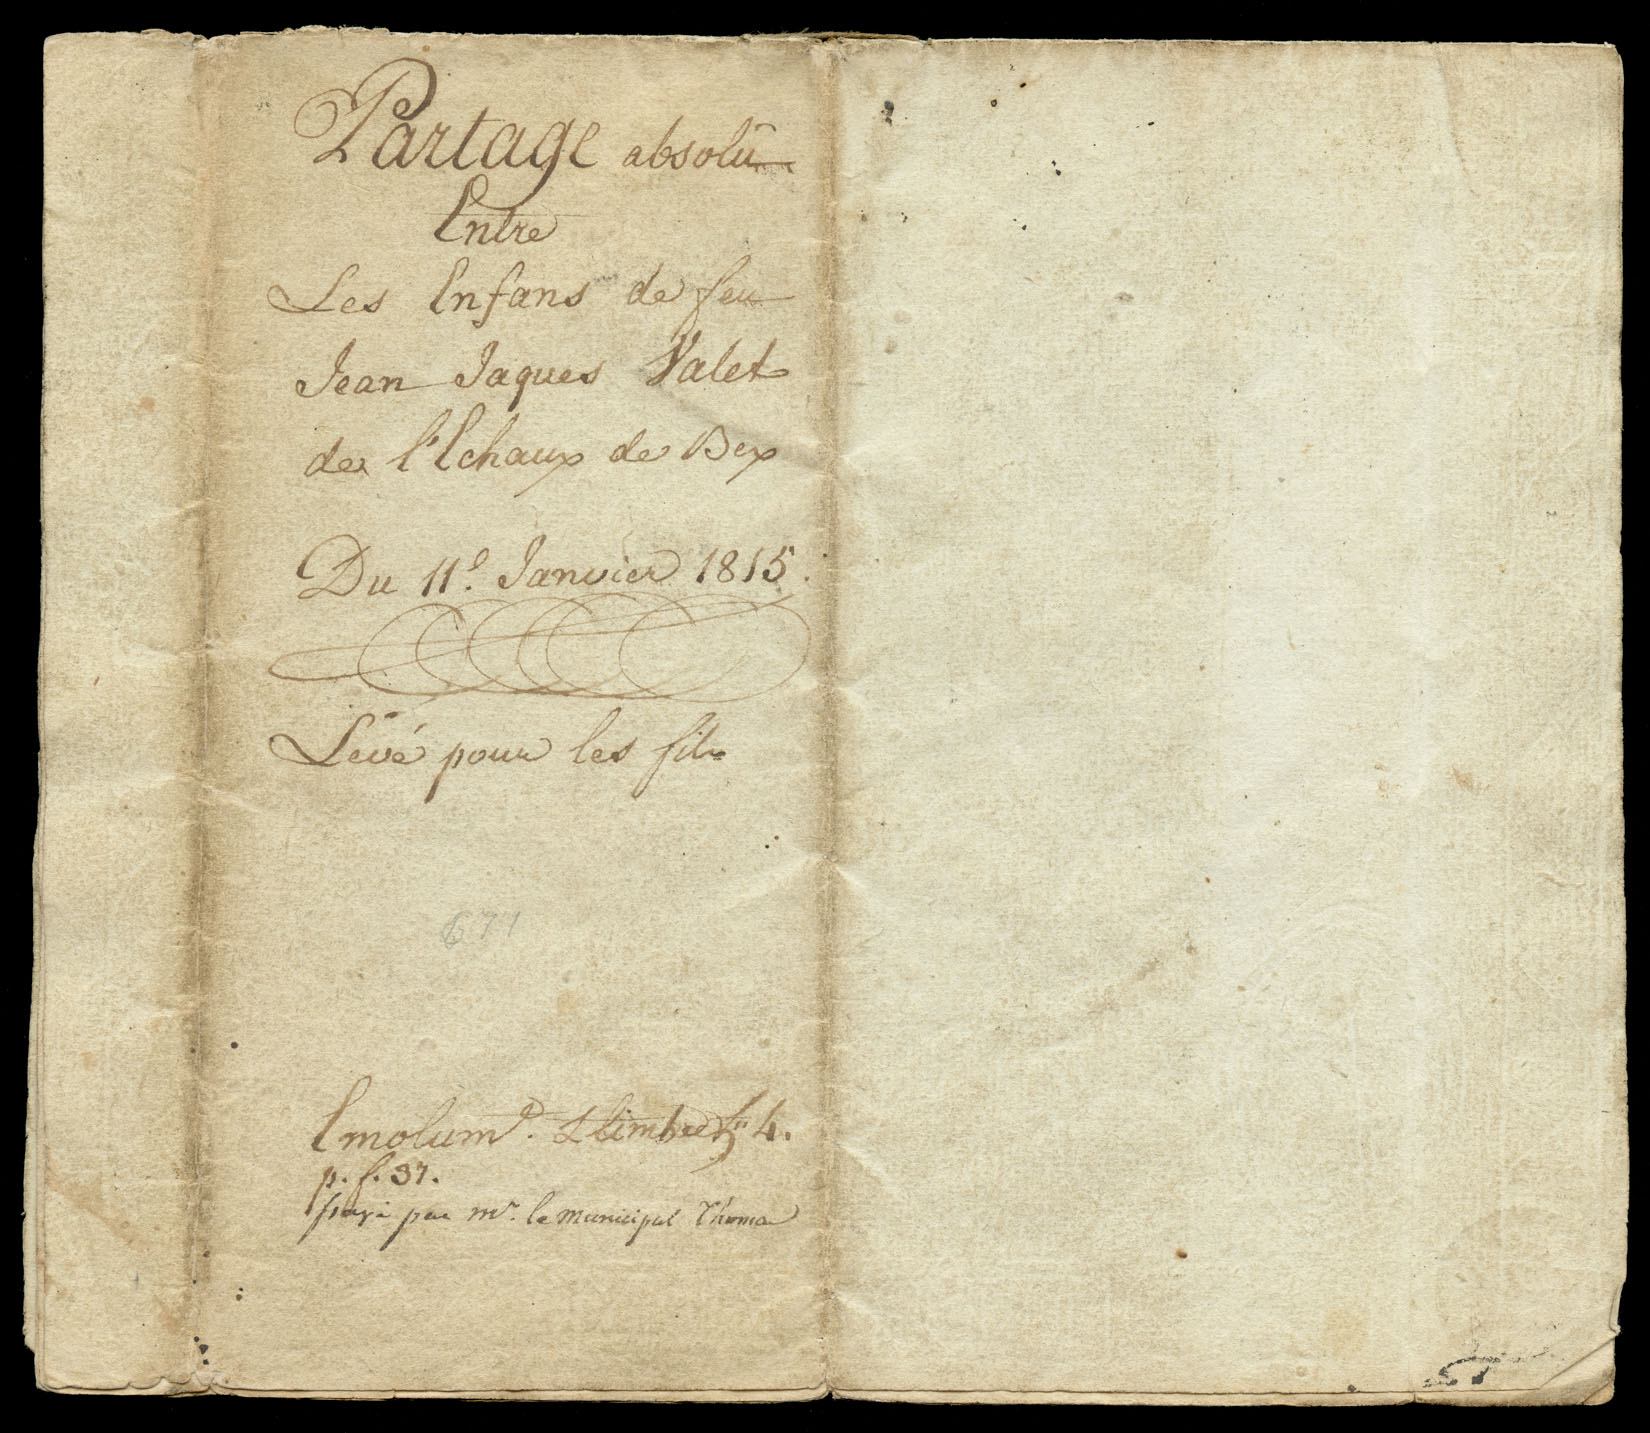 Partage absolû
Entre
Les Enfans de feu
Jean Jaques Valet
de l'Echaux de Bex
Du 11e. Janvier 1815.
Levé pour les fils
671
Emolumt. & timbre 4.
p. f. 37.
payé par mr. le municipal Thoma